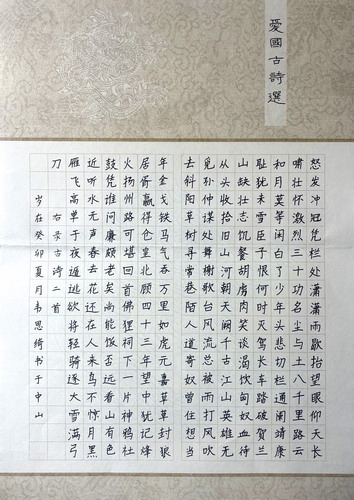 愛國古詩選
怒发冲冠凭栏处潇潇雨歇抬望眼仰天长
啸壮怀激烈三十功名尘与土八千里路云
和月莫等闲白了少年头悲切栏通阑靖康
耻犹未雪臣子恨何时灭驾长车踏破贺兰
山缺壮志饥餐胡虏肉笑谈渴饮匈奴血待
从头收拾旧山河朝天阙千古江山英雄无
觅孙仲谋处舞榭歌台风流总被雨打风吹
去斜阳草树寻常巷陌人道寄奴曾住想当
年金戈铁马气吞万里如虎元嘉草草封狼
居胥赢得仓皇北顾四十三年望中犹记烽
火扬州路可堪回首佛狸祠下一片神鸦社
鼓凭谁问廉颇老矣尚能饭否远看山有色
近听水无声春去花还在人来鸟不惊月黑
雁飞高单于夜遁逃欲将轻骑逐大雪满弓
刀 右录古诗二首
岁在癸卯夏月韦思绮书于中山